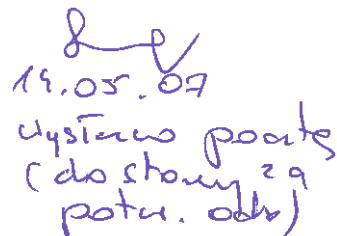 14.05.07
wysłano pocztą
(do strony za
potw. odb)